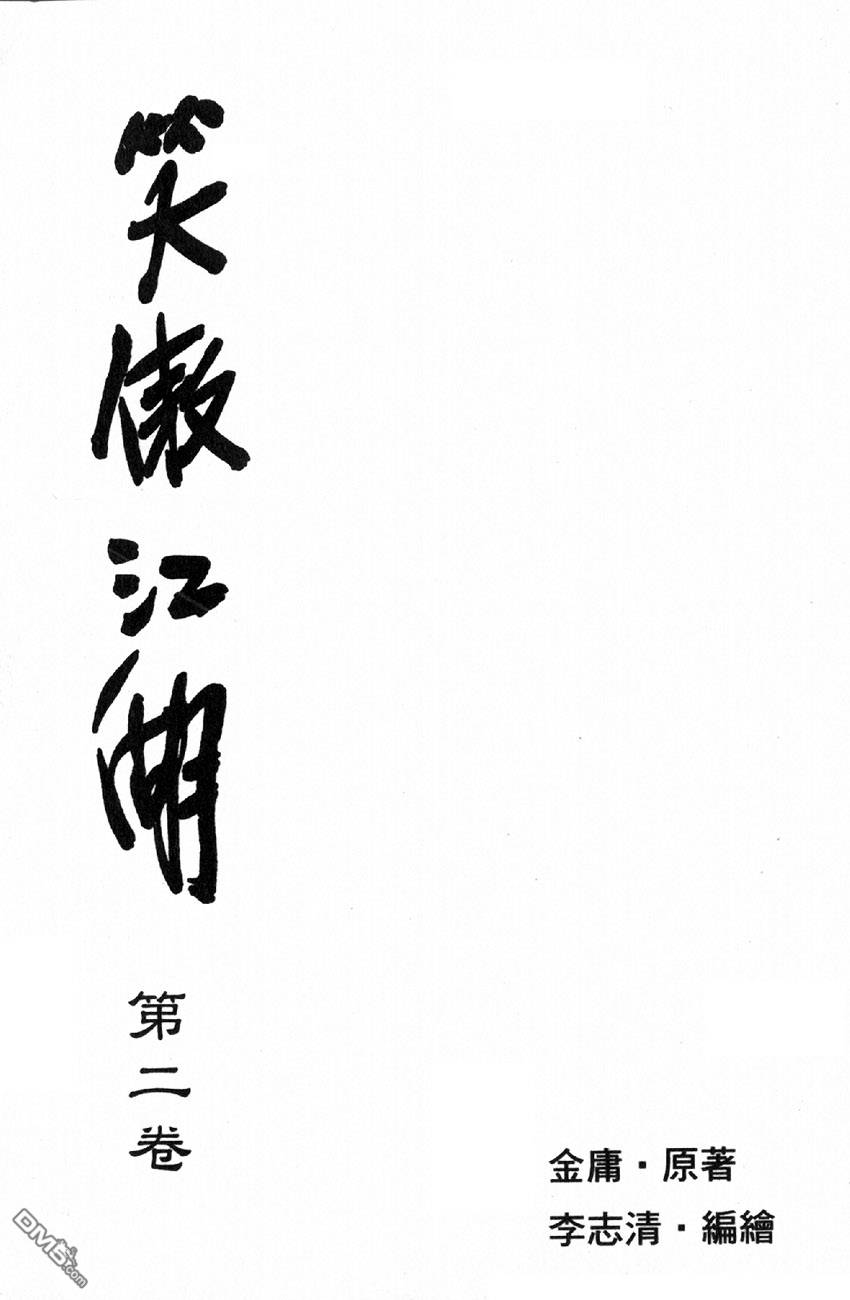 笑傲江湖
第二卷
金庸·原著
李志清·編繪
DM5.com